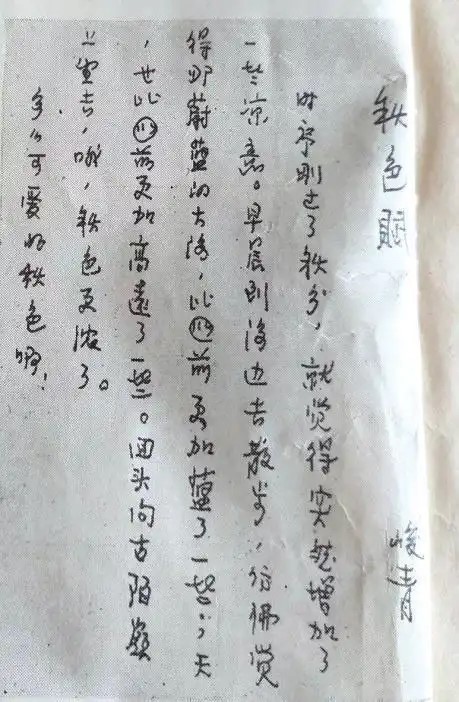 秋色赋
峻青
时序刚过了秋分，就觉得突然增加了
一些凉意。早晨到海边去散步，仿佛觉
得那蔚蓝的大海，比前更加蓝了一些；天
，也比前更加高遠了一些。回头向古陌嶺
上望去，哦，秋色更浓了。
多么可爱的秋色啊！